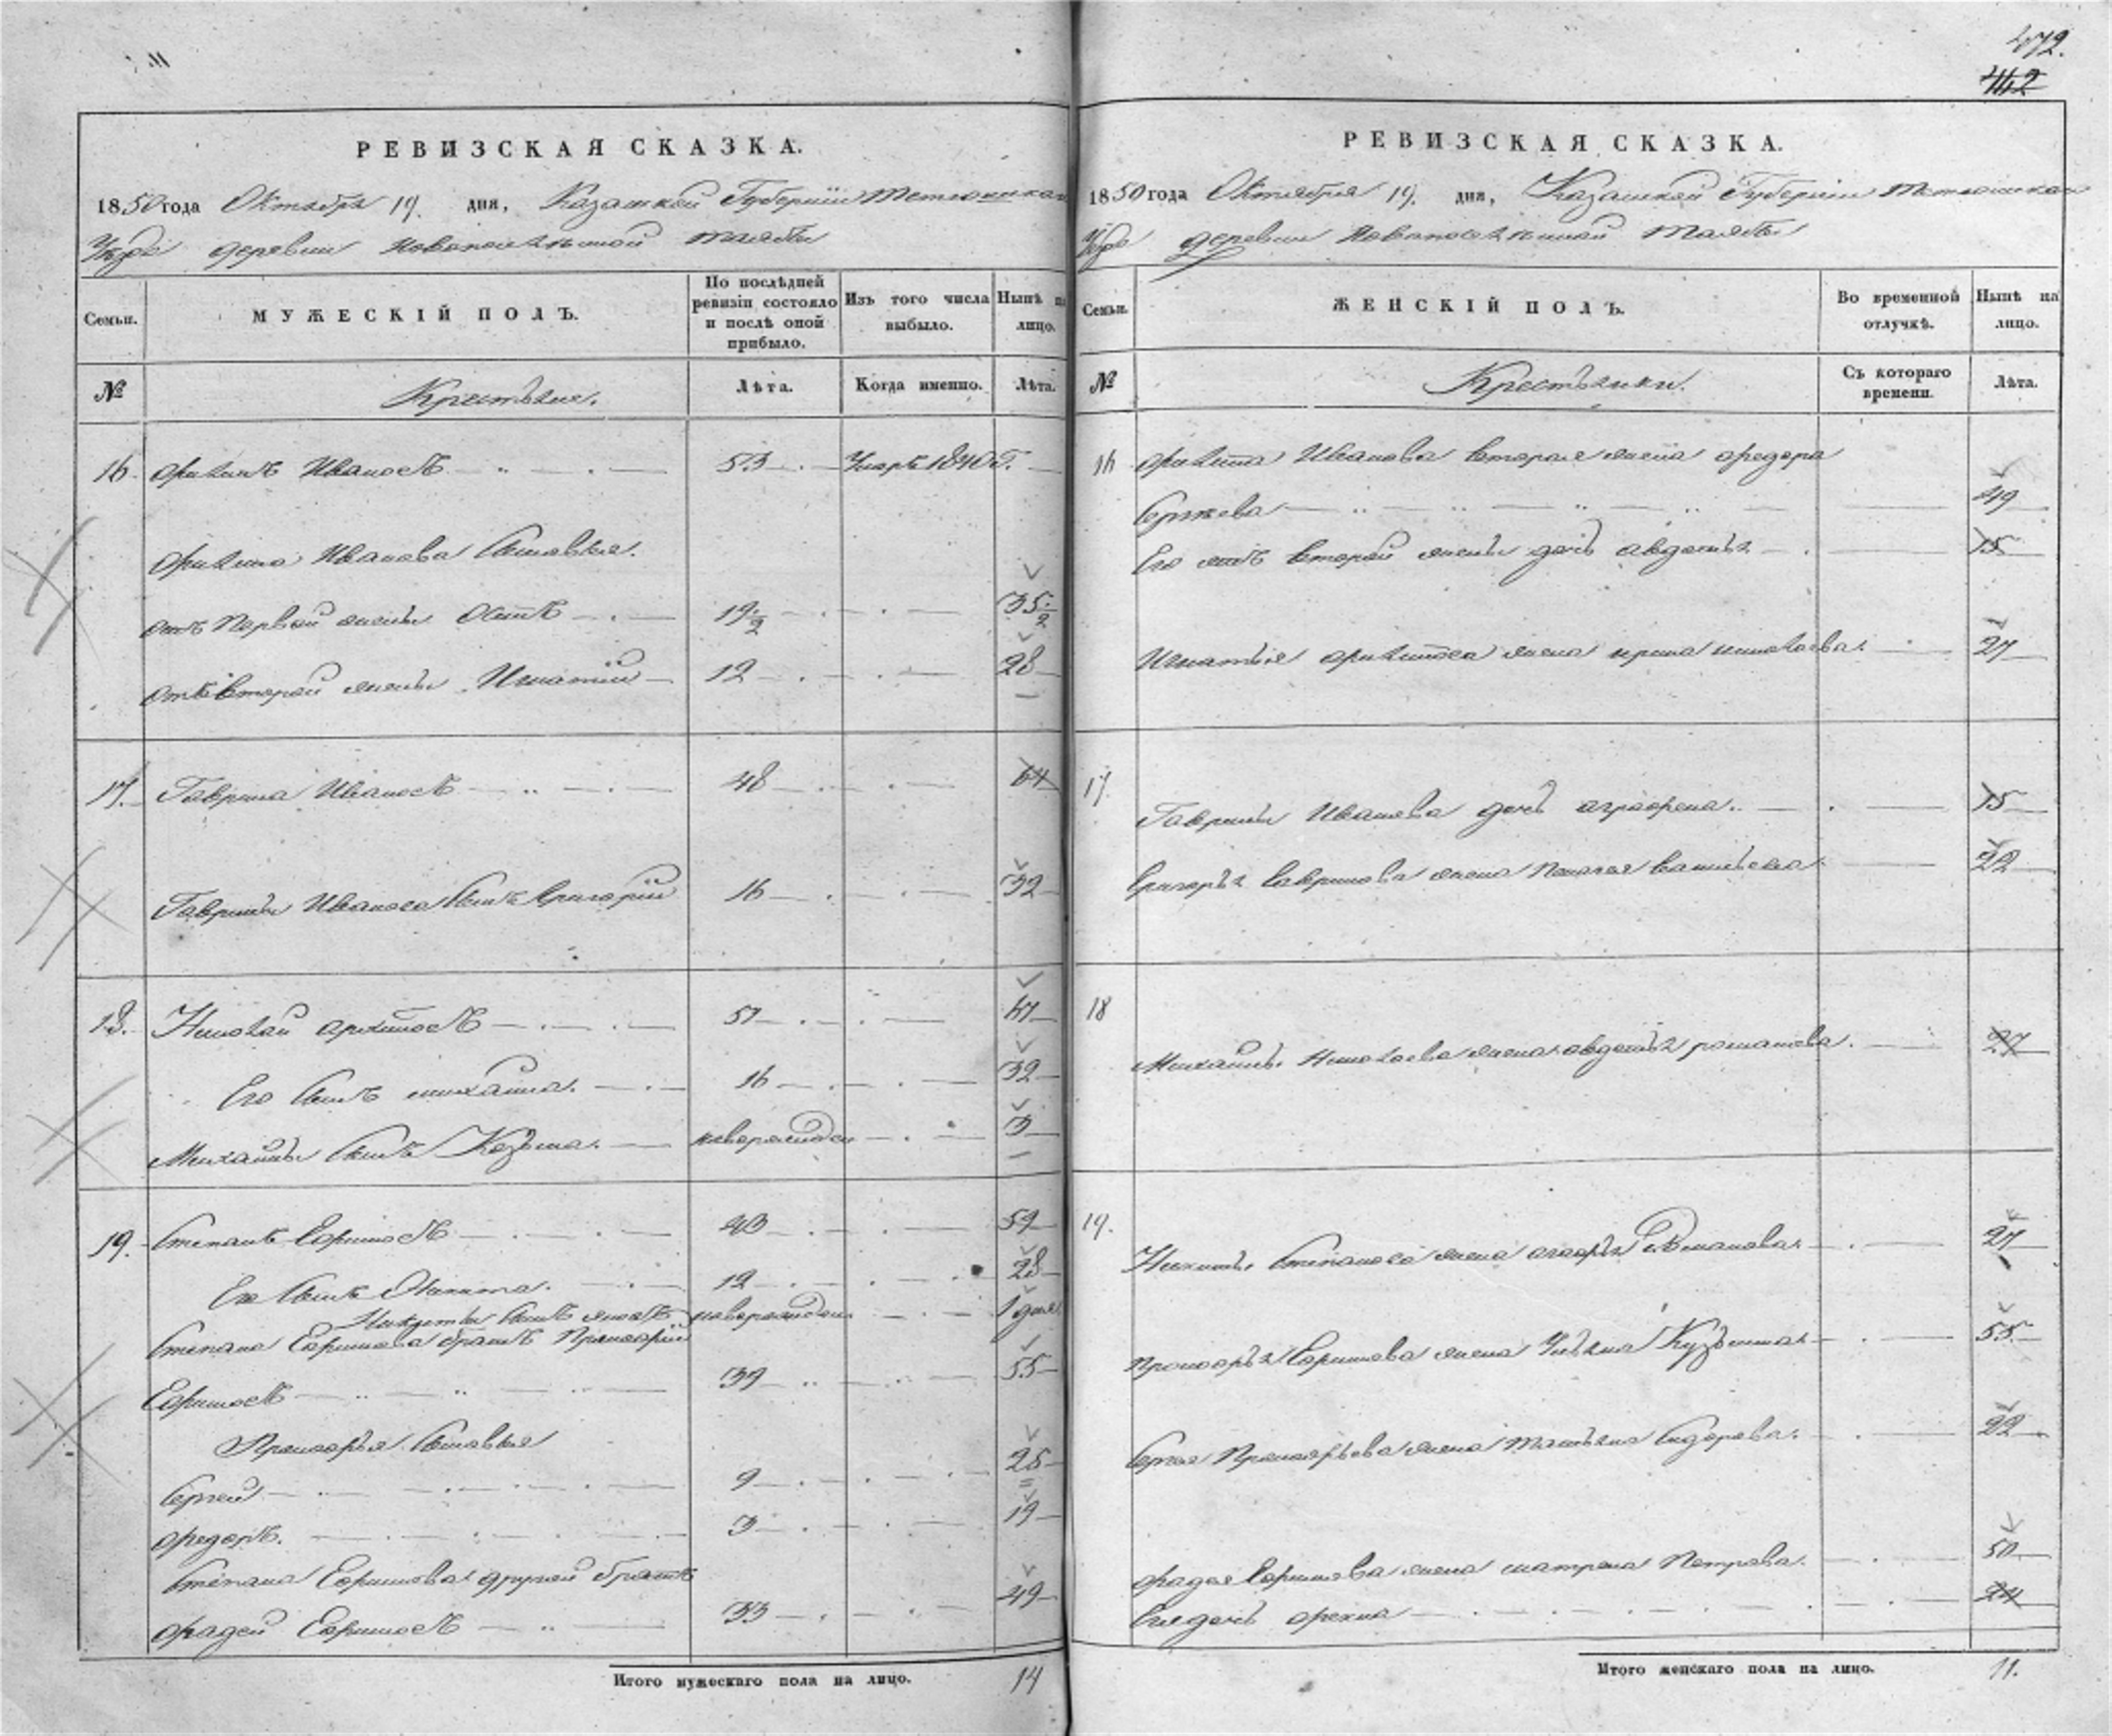 472.
442
РЕВИЗСКАЯ СКАЗКА.
1850 года Октября 19. дня, Казанской Губернии Тетюшскаго
Уезда деревни Новопоселенной
Семьи. МУЖЕСКІЙ ПОЛЪ. По послѣдней ревизіи состояло и послѣ оной прибыло. Изъ того числа выбыло. Нынѣ на лицо.
№ Крестьяне. Лѣта. Когда именно. Лѣта.
16. Филипъ Ивановъ 53 Умеръ 1840 г.
Филипа Иванова сыновья.
отъ первой жены Осипъ 19 1/2 35 1/2
отъ второй жены Игнатій 12 28
17. Гаврила Ивановъ 48 64
Гаврилы Иванова сынъ Григорій 16 32
18. Николай 51 67
Его сынъ Михайла. 16 32
Михайлы сынъ Козьма. новорожден 3
19. Степанъ Ефимовъ 43 59
Его сынъ Никита. 12 28
Никиты сынъ новорожден 1 дня
Степана Ефимова братъ Прокофій
Ефимовъ 39 55
Прокофья сыновья
Сергей 9 25
Федоръ. 3 19
Степана Ефимова другой братъ
Фадей Ефимовъ 33 49
Итого мужескаго пола на лицо. 14
РЕВИЗСКАЯ СКАЗКА.
1850 года Октября 19. дня, Казанской Губерніи Тетюшскаго
Уезда деревни Новопоселенной
Семьи. ЖЕНСКІЙ ПОЛЪ. Во временной отлучкѣ. Нынѣ на лицо.
№ Крестьянки. Съ котораго времени. Лѣта.
16 Филипа Иванова вторая жена Федора
Сергеева 49
Его отъ второй жены дочь Авдотья 15
Игнатья Филипова жена Ирина Николаева. 27
17 Гаврилы Иванова дочь Аграфена. 15
Григорья Гаврилова жена Пелагея Васильева 22
18
Михайлы Николаева жена Авдотья Романова. 27
19. Никиты Степанова жена Агафья Романова. 27
Прокофья Ефимова жена Ульяна Кузьмина 55
Сергея Прокофьева жена Татьяна Сидорова. 22
Фадея Ефимова жена Матрена Петрова. 50
Ея дочь Фекла 24
Итого женскаго пола на лицо. 11.